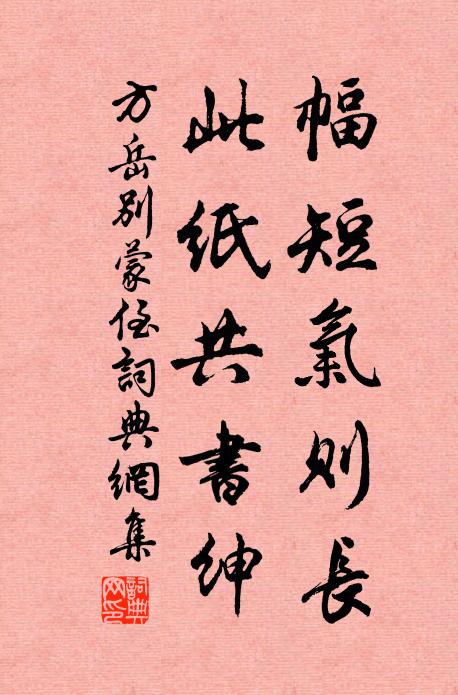 幅短氣則長
此紙共書紳
方岳別蒙侄詞典網集
詞典網印